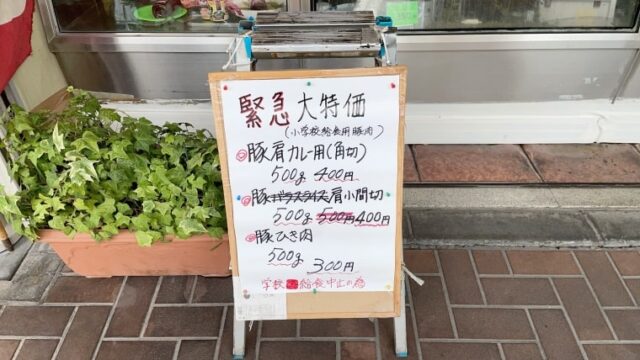 緊急大特価
(小学校給食用豚肉)
◎豚肩カレー用(角切)
500g 400円
◎豚バラスライス肩小間切
500g 500円 400円
◎豚ひき肉
500g 300円
学校給食中止の為